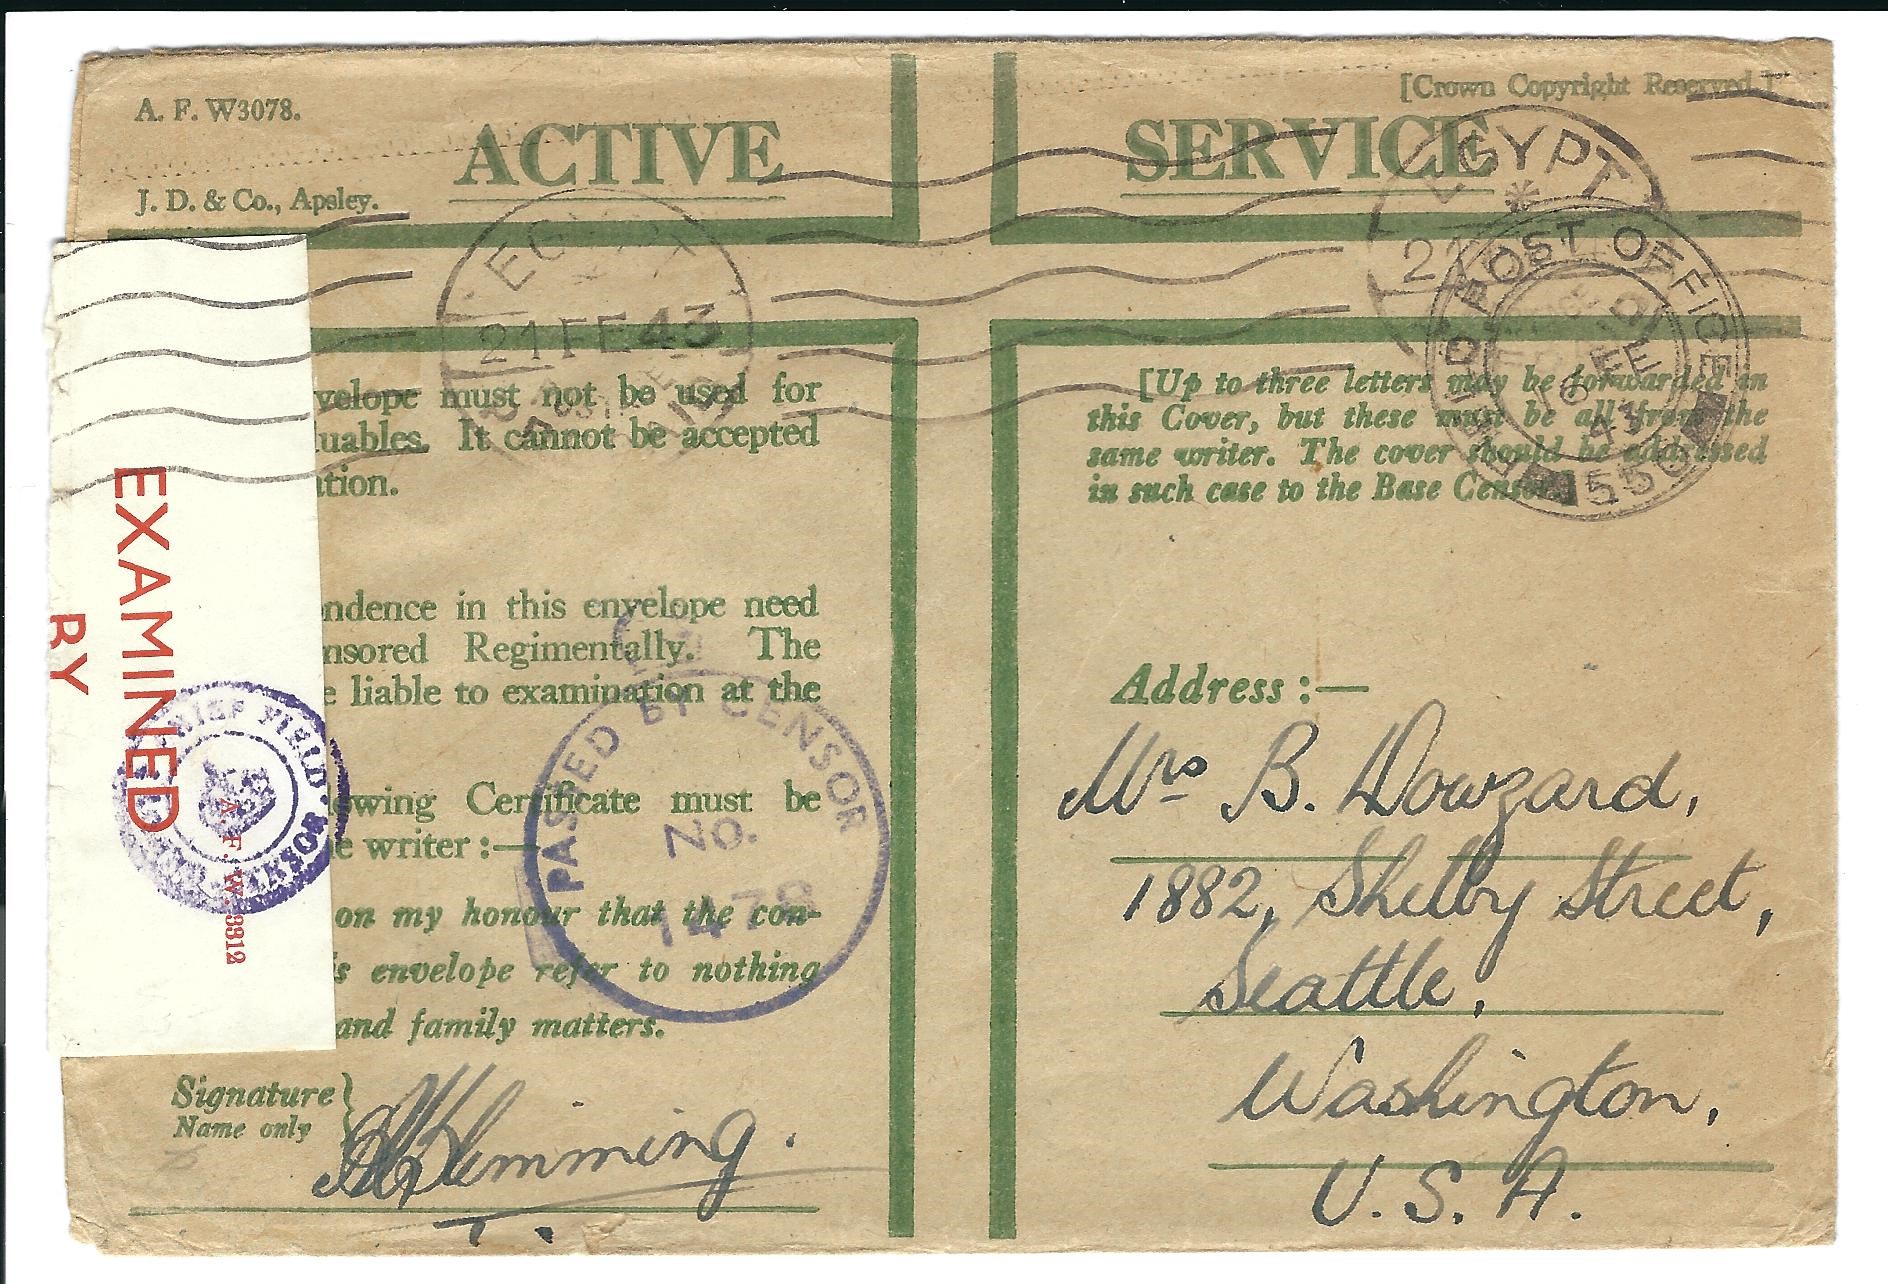 A. F. W3078.
[Crown Copyright Reserved.]
ACTIVE SERVICE
J. D. & Co., Apsley.
EGYPT
21 FE 43
EGYPT
FIELD POST OFFICE
16 FE
43
550
velope must not be used for
uables. It cannot be accepted
ation.
ndence in this envelope need
nsored Regimentally. The
e liable to examination at the
owing Certificate must be
e writer :—
on my honour that the con-
is envelope refer to nothing
and family matters.
Signature
Name only
EXAMINED
BY
A. F. W. 3312
CHIEF FIELD CENSOR
PASSED BY CENSOR
No.
1478
[Up to three letters may be forwarded in
this Cover, but these must be all from the
same writer. The cover should be addressed
in such case to the Base Censor.]
Address :—
Mrs B. Dowzard,
1882, Shelby Street,
Seattle,
Washington,
U. S. A.